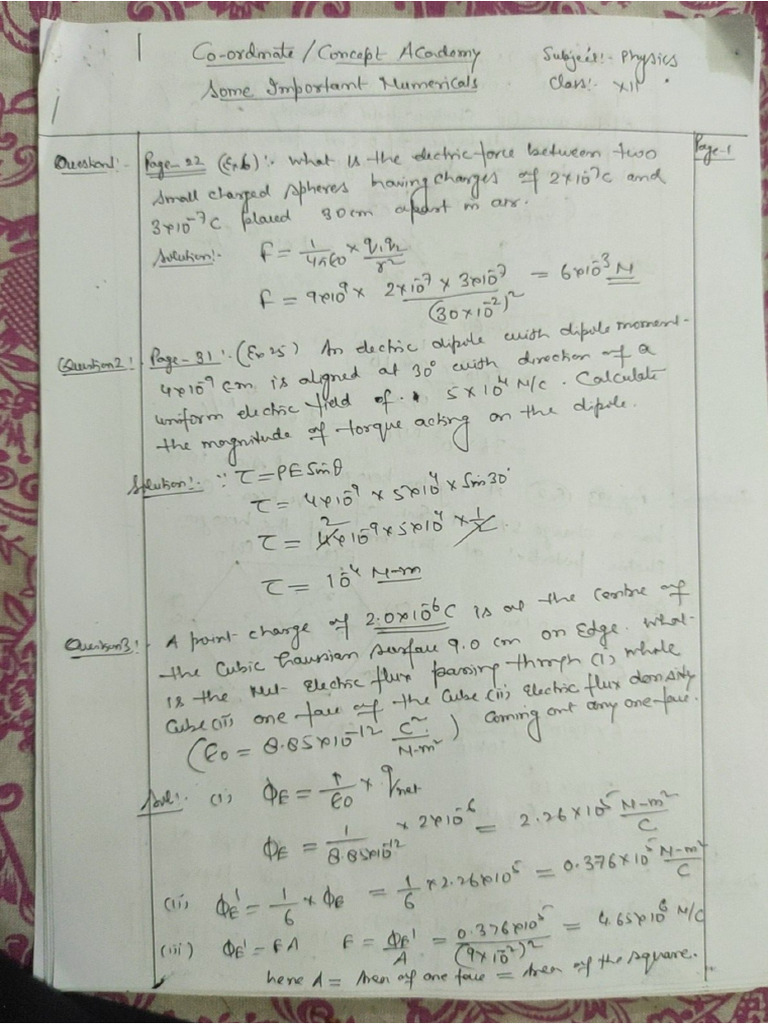 Co-ordinate / Concept Academy
Subject:- Physics
Some Important Numericals
Class:- XII
Page-1
Question1:- Page-22 (Ex6):- What is the electric force between two
small charged spheres having charges of 2×10⁻⁷C and
3×10⁻⁷C placed 30cm apart in air.
Solution:- F = 1/4πε0 × q1q2/r²
F = 9×10⁹ × 2×10⁻⁷ × 3×10⁻⁷/(30×10⁻²)² = 6×10⁻³ N
Question2:- Page-31:- (Ex25) An electric dipole with dipole moment-
4×10⁻⁹ cm is aligned at 30° with direction of a
uniform electric field of 5×10⁴ N/C. Calculate
the magnitude of torque acting on the dipole.
Solution:- ∵ τ = PE Sinθ
τ = 4×10⁻⁹ × 5×10⁴ × Sin30°
τ = 4×10⁻⁹ × 5×10⁴ × 1/2
τ = 10⁻⁴ N-m
Question3:- A point charge of 2.0×10⁻⁶C is at the centre of
the Cubic Gaussian surface 9.0 cm on Edge. What-
is the Net- Electric flux passing through (i) whole
Cube (ii) one face of the Cube (iii) Electric flux density
(ε0 = 8.85×10⁻¹² C²/N-m²) coming out any one face.
Sol:- (i) ΦE = 1/ε0 × qnet
ΦE = 1/8.85×10⁻¹² × 2×10⁻⁶ = 2.26×10⁵ N-m²/C
(ii) ΦE' = 1/6 × ΦE = 1/6 × 2.26×10⁵ = 0.376×10⁵ N-m²/C
(iii) ΦE' = EA E = ΦE'/A = 0.376×10⁵/(9×10⁻²)² = 4.65×10⁶ N/C
here A = Area of one face = Area of the square.